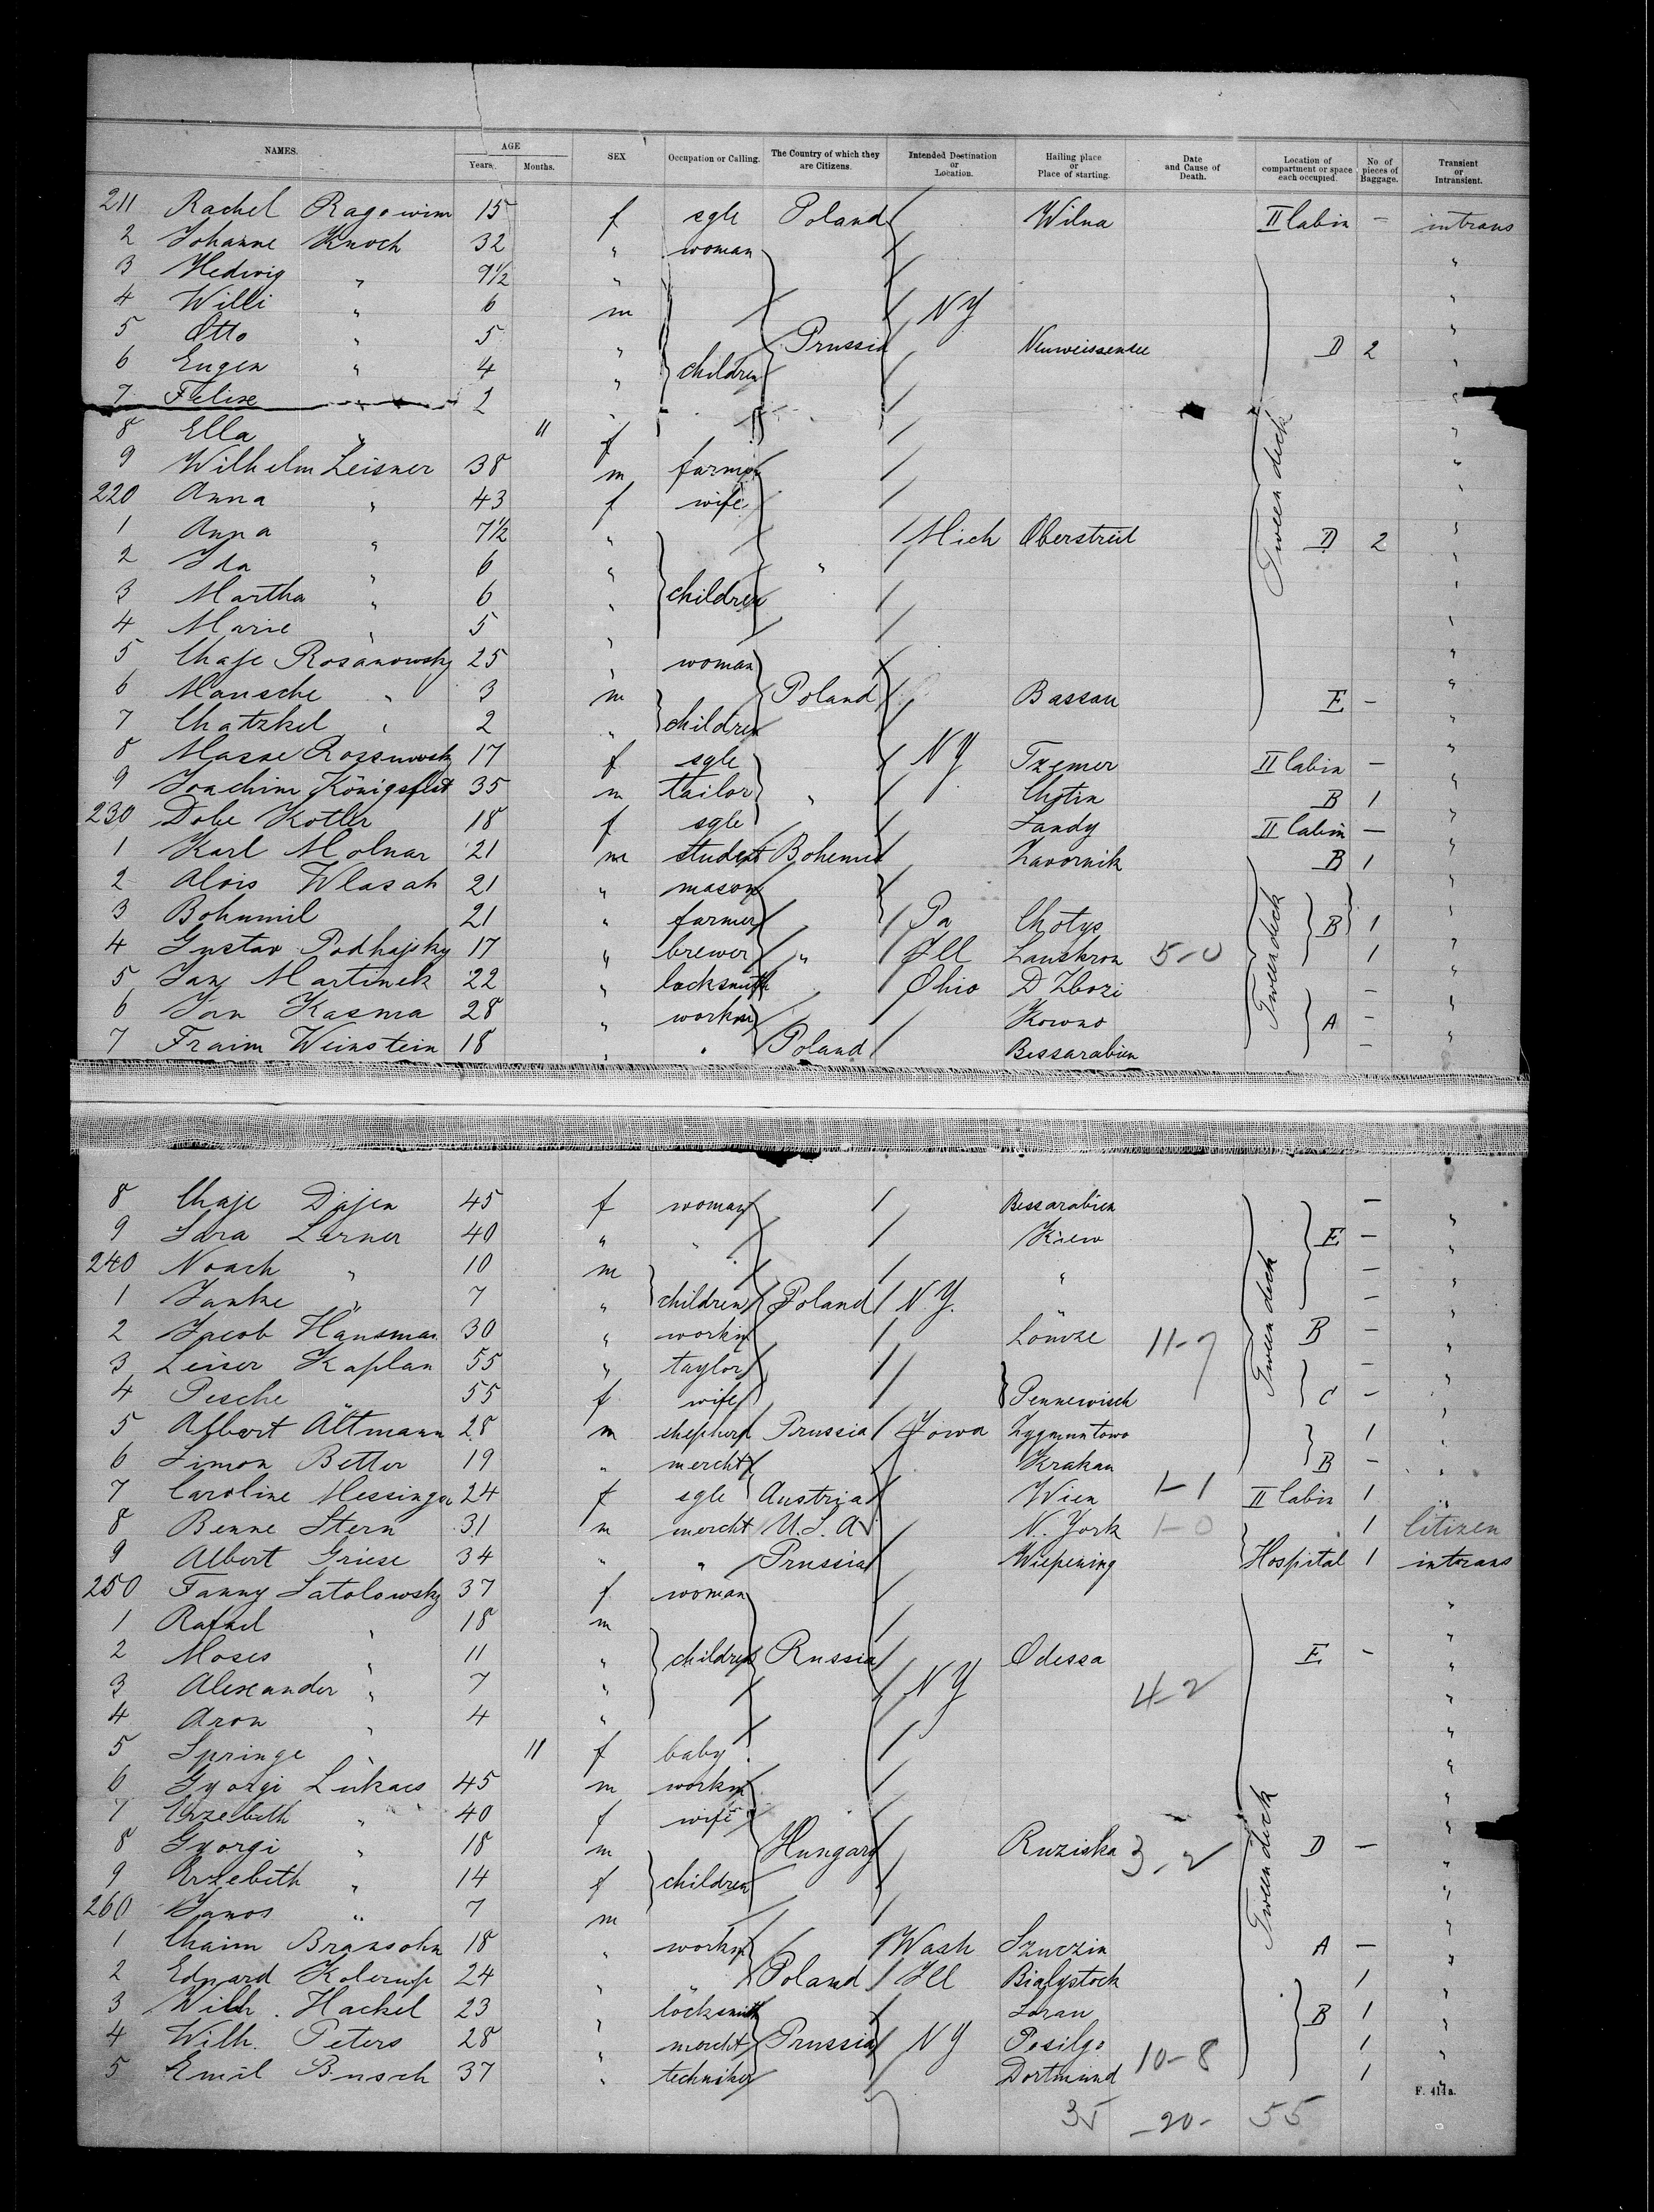 NAMES. AGE Years. Months. SEX Occupation or Calling. The Country of which they are Citizens. Intended Destination or Location. Hailing place or Place of starting. Date and Cause of Death. Location of compartment or space each occupied. No. of pieces of Baggage. Transient or Intransient.
211 Rachel Ragowim 15 f sgle Poland / Wilna II Cabin — intrans
2 Johanne Knoch 32 " woman / "
3 Hedwig " 9 1/2 " / "
4 Willi " 6 m / NY "
5 Otto " 5 " Prussia / Neuweissensee D 2 "
6 Eugen " 4 " children / "
7 Felix " 2 " / "
8 Ella " 11 f / "
9 Wilhelm Leisner 38 m farmer / "
220 Anna " 43 f wife / "
1 Anna " 7 1/2 " / Mich Oberstreit Tween deck D 2 "
2 Ida " 6 " " "
3 Martha " 6 " children / "
4 Marie " 5 " / "
5 Chaje Rosanowsky 25 " woman / "
6 Mausche " 3 m Poland / Bassau E — "
7 Chatzkel " 2 " children / "
8 Masse 17 f sgle / NY Tzemer II Cabin — "
9 Joachim 35 m tailor " / Chotin B 1 "
230 Dobe Kotler 18 f sgle / Landy II Cabin — "
1 Karl Molnar 21 m student Bohemia Zavornik B 1 "
2 Alois Wlasak 21 " mason / "
3 Bohumil 21 " farmer " / Pa Chotys Tween deck B 1 "
4 Gustav Podhajsky 17 " brewer " / Ill Lanskron 5-0 1 "
5 Jan Martinek 22 " locksmith " Ohio D Zbozi — "
6 Jan Kasma 28 " workm Kowno A — "
7 Fraim Weinstein 18 " " Poland / Bessarabien — "
8 Chaje Dajen 45 f woman / Bessarabien —
9 Sara Lerner 40 " " / Kiew E — "
240 Noach " 10 m / " — "
1 Janke " 7 " children Poland / N.Y. — "
2 Jacob Hausman 30 " workm / Lomze 11-7 Tween deck B — "
3 Leiser Kaplan 55 " taylor / — "
4 Pesche 55 f wife / Pennewisch C — "
5 Albert Altmann 28 m shepherd Prussia / Iowa Zygmuntowo 1 "
6 Simon Better 19 " mercht / Krakau B — "
7 Caroline Messinger 24 f sgle Austria / Wien 1-1 II Cabin 1 "
8 Benne Stern 31 m mercht U.S.A N. York 1-0 1 Citizen
9 Albert Griese 34 " " Prussia / Wiepening Hospital 1 intrans
250 Fanny Satolowsky 37 f woman / "
1 Rafael " 18 m / "
2 Moses " 11 " children Russia / Odessa E — "
3 Alexander " 7 " / NY 4-2 "
4 Aron " 4 " / "
5 Springe " 11 f baby / "
6 Gyorgi Lukacs 45 m workm / "
7 Erzebeth " 40 f wife / "
8 Gyorgi " 18 m Hungary / Ruziska 3-2 Tween deck D — "
9 Erzebeth " 14 f children "
260 Janos " 7 m / "
1 Chaim Bransohn 18 " workm / Wash Szuczin A — "
2 Eduard 24 " " Poland / Ill Bialystock 1 "
3 Wilh. Hackel 23 " locksmith / Soran B 1 "
4 Wilh. Peters 28 " mercht Prussia / NY Posilge 1 "
5 Emil Busch 37 " techniker Dortmund 10-8 1 "
F. 411a.
35 -20- 55